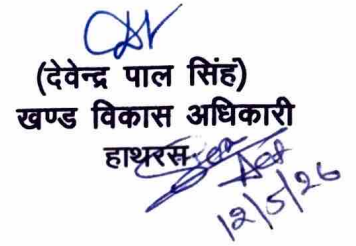 (देवेन्द्र पाल सिंह)
खण्ड विकास अधिकारी
हाथरस
12/5/26